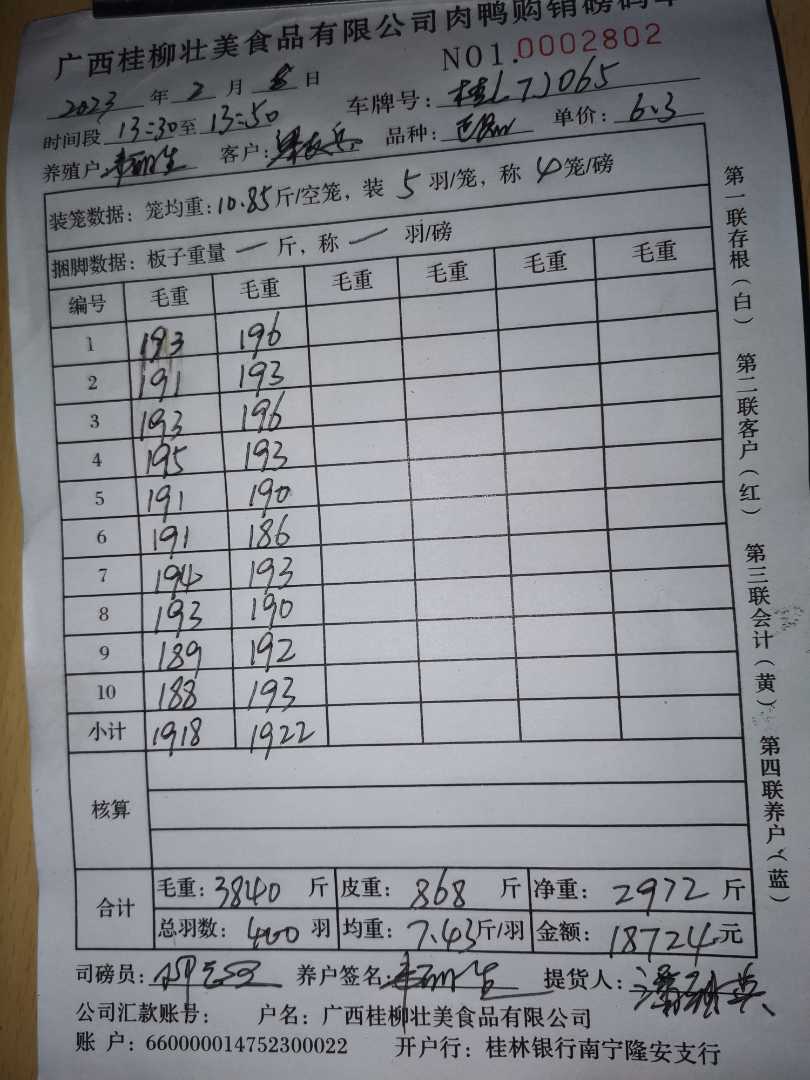 广西桂柳壮美食品有限公司肉鸭购销磅码单
NO1.0002802
2023年2月8日 车牌号:桂L7J065
时间段13:30至13:50
养殖户 客户: 品种: 单价:6.3
装笼数据:笼均重:10.85斤/空笼,装5羽/笼,称4笼/磅
捆脚数据:板子重量一斤,称一羽/磅
编号 毛重 毛重 毛重 毛重 毛重 毛重
1 193 196
2 191 193
3 193 196
4 195 193
5 191 190
6 191 186
7 194 193
8 193 190
9 189 192
10 188 193
小计 1918 1922
核算
合计 毛重:3840斤 皮重:868斤 净重:2972斤
总羽数:400羽 均重:7.43斤/羽 金额:18724元
司磅员: 养户签名: 提货人:
公司汇款账号: 户名:广西桂柳壮美食品有限公司
账 户:660000014752300022 开户行:桂林银行南宁隆安支行
第一联存根(白) 第二联客户(红) 第三联会计(黄) 第四联养户(蓝)